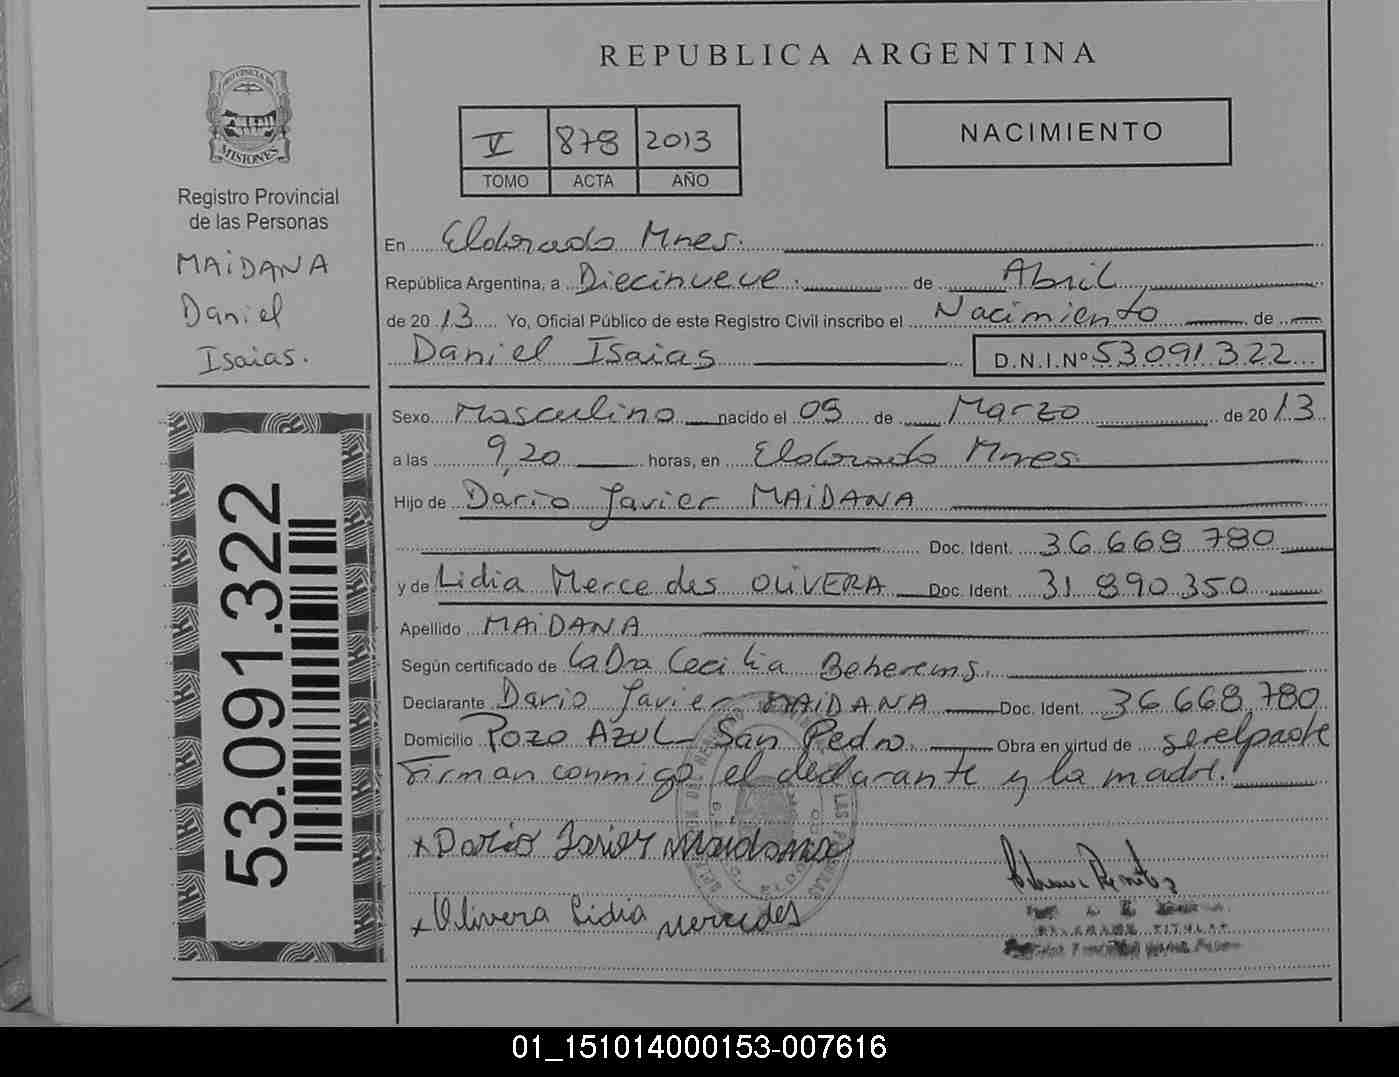 REPUBLICA ARGENTINA
V 878 2013
TOMO ACTA AÑO
NACIMIENTO
MISIONES
Registro Provincial
de las Personas
MAiDANA
Daniel
Isaias.
53.091.322
En Eldorado Mnes.
República Argentina, a Diecinueve de Abril
de 2013 Yo, Oficial Público de este Registro Civil inscribo el Nacimiento de
Daniel Isaias D.N.I.Nº 53091322
Sexo Masculino nacido el 09 de Marzo de 2013
a las 9,20 horas, en Eldorado Mnes
Hijo de Dario Javier MAiDANA
Doc. Ident. 36 668 780
y de Lidia Mercedes OLiVERA Doc. Ident. 31 890 350
Apellido MAiDANA
Según certificado de La Dra Cecilia
Declarante Dario Javier MAiDANA Doc. Ident. 36 668 780
Domicilio POZO AZUL San Pedro. Obra en virtud de
Firman conmigo el declarante y la madre.
x Dario Javier Maidana
x Olivera Lidia Mercedes
01_151014000153-007616